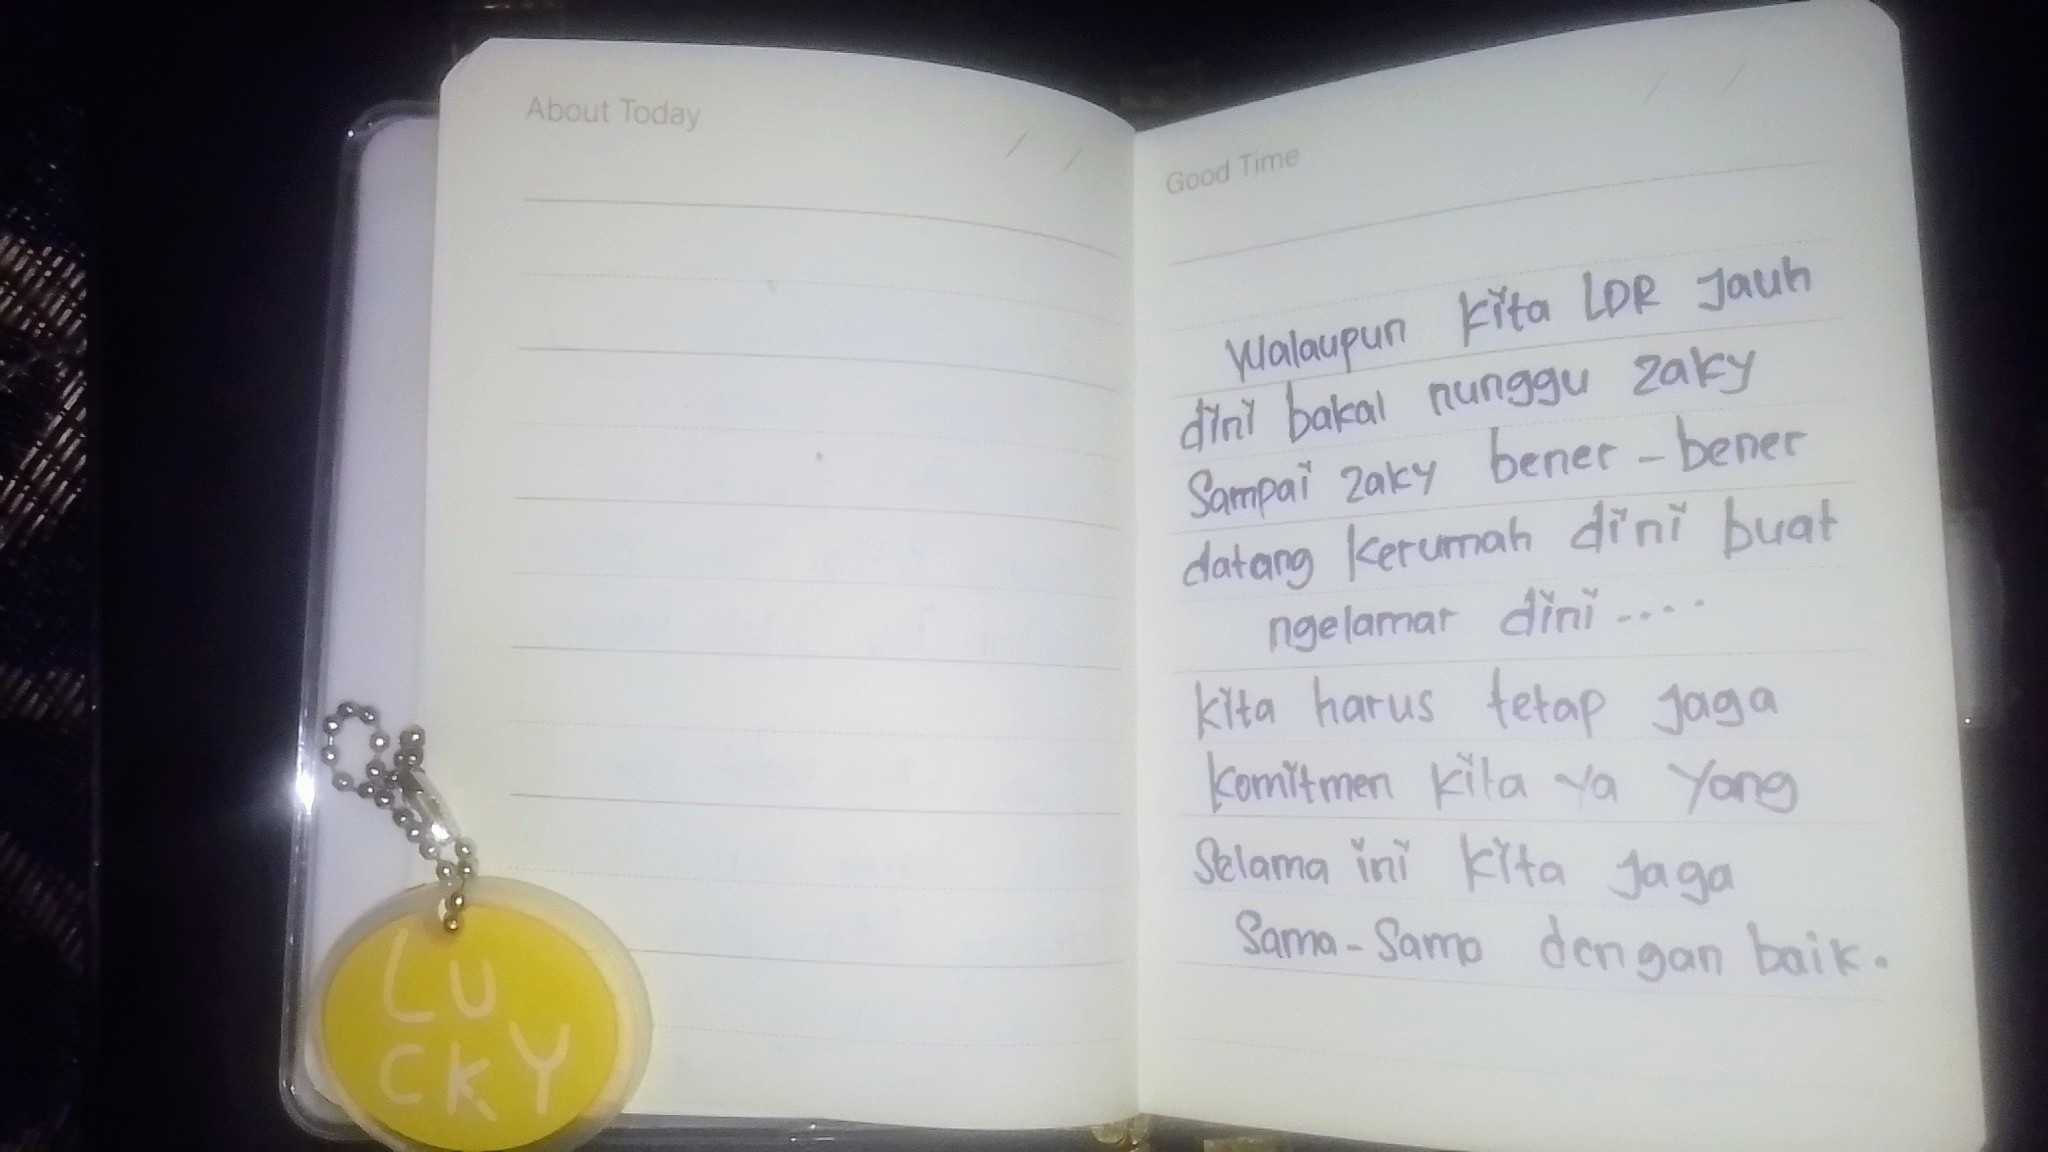 About Today
/ /
Good Time
/ /
Walaupun kita LDR Jauh
dini bakal nunggu zaky
Sampai zaky bener - bener
datang kerumah dini buat
ngelamar dini ....
kita harus tetap Jaga
komitmen kita ya yang
Selama ini kita Jaga
Sama - Sama dengan baik.
LU
CKY